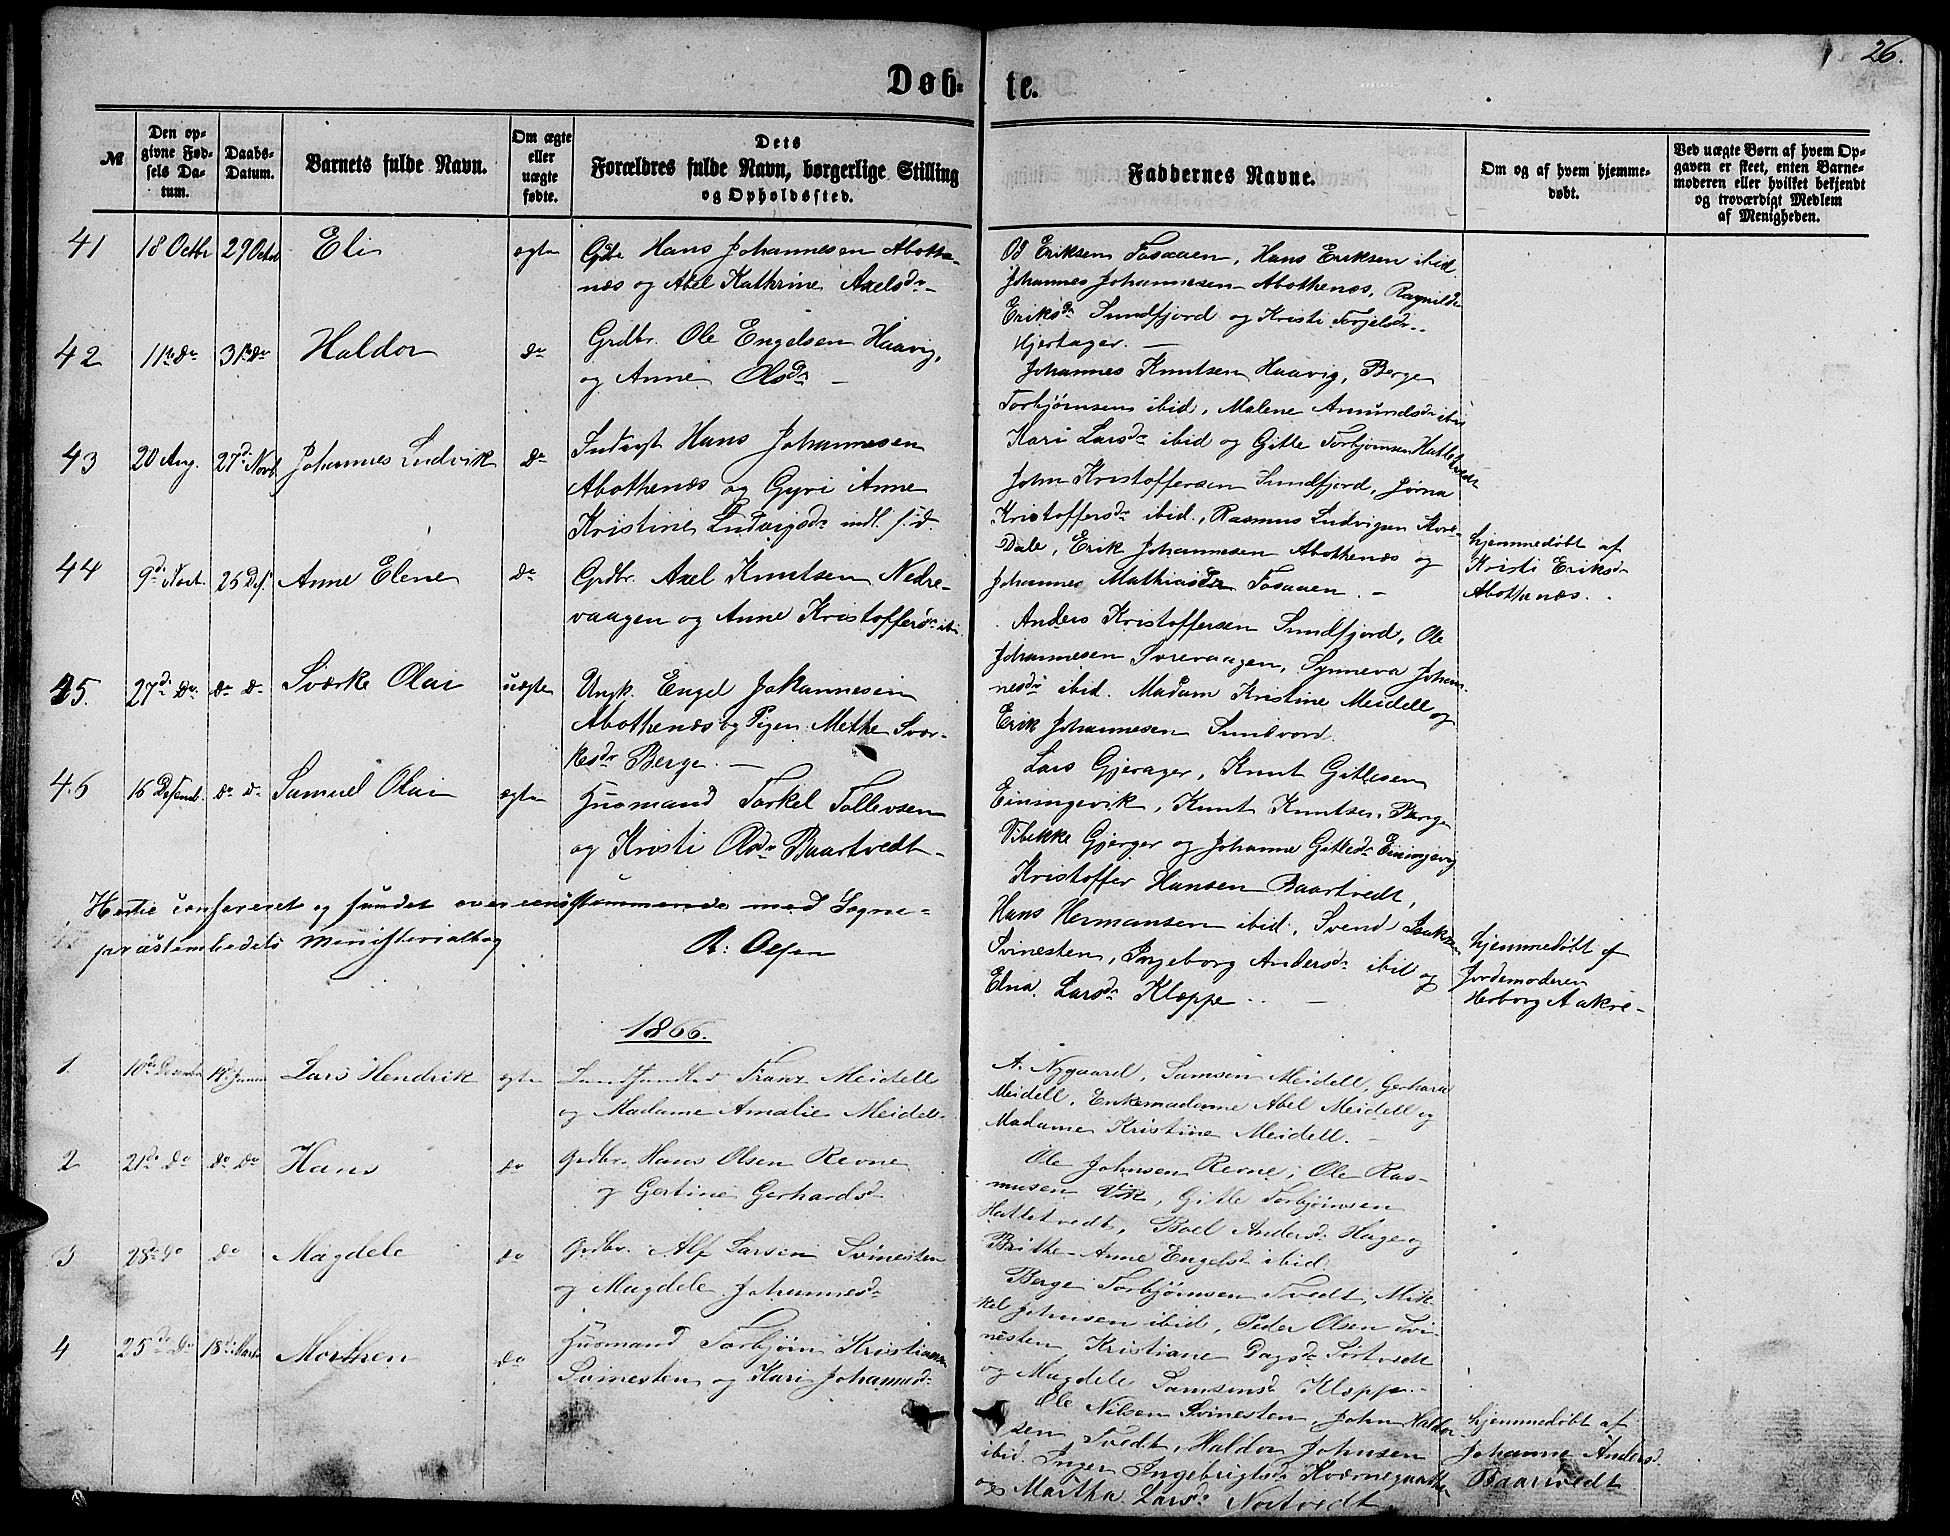 26.
Døb-
te.
№
Den op-
givne Fød-
sels Da-
tum.
Daabs-
Datum.
Barnets fulde Navn.
Om ægte
eller
uægte
fødte.
Dets
Forældres fulde Navn, borgerlige Stilling
og Opholdssted.
Faddernes Navne.
Om og af hvem hjemme-
døbt.
Ved uægte Børn af hvem Op-
gaven er skeet, enten Barne-
moderen eller hvilket bekjendt
og troværdigt Medlem
af Menigheden.
41
18 Octbr
29 Octob
Eli
ægte
Gdbr. Hans Johannesen Abothe-
nes og Abel Kathrine Axelsdr
Eriksen Fosaaen, Hans Eriksen ibid.
Johannes Johannesen Abothenæs, Ragnilde
Eriksdr Sundfjord og Kristi Torjelsdr
Hjertager.
42
11te do
31te do
Haldor
do
Grdbr. Ole Engelsen Haavig,
og Anne Olsdr
Johannes Knutsen Haavig, Berge
Torbjørnsen ibid, Malene Amundsdr ibid
Kari Larsdr ibid og Gitle Torbjørnsen Hattetvedt
43
20 Aug.
27d Novb
Johannes Ludvik
do
Indvgt Hans Johannesen
Abothenæs og Gyri Anne
Kristine Ludvigsdr indl. s. d.
John Kristoffersen Sundfjord, Jørna
Kristoffersdr ibid., Rasmus Ludvigsen Store-
Dale, Erik Johannesen Abothenæs og
Johannes Mathiasen Fosaaen.
hjemmedøbt af
Kristi Eriksdr
Abothenæs.
44
9d Novt.
26 Des.
Anne Elene
do
Grdbr. Axel Knutsen Nedre-
vaagen og Anne Kristoffersdr ibi
Anders Kristoffersen Sundfjord, Ole
Johannesen Svrevaagen, Synneva Johan-
nesdr ibid. Madam Kristine Meidell og
Erik Johannesen Sundvord.
45.
27d do.
do do
Sværke Olai
uægte
Ungk. Engel Johannesen
Abothenæs og Pigen Methe Svær-
kesdr Berge.
Lars Gjerager, Knut Gitlesen
Einingevik, Knut Knutsen Berge
Vibekke Gjerger og Johanne Gitlesdr Einingevig
46
16 Desemb.
do do
Samuel Olai
ægte
Husmand Torkel Tollevsen
og Kristi Olsdr Baartvedt
Kristoffer Hansen Baartvedt,
Hans Hermansen ibid, Svend Isaksen
Svinesten, Ingeborg Andersdr ibid og
Elna Larsdr Kloppe
hjemmedøbt af
Jordemoderen
Herborg Aakre-
Hertil confereret og fundet overeensstemmende med Sogne-
præstembedets Ministerialbog
R: Olsen
1866.
1
10de Desember
14d Januar
Lars Hendrik
ægte
Landhandler Franz Meidell
og Madame Amalie Meidell.
A. Nygaard, Samsen Meidell, Gerhard
Meidell, Enkemadame Abel Meidell og
Madame Kristine Meidell.
2
21de do
do do
Hans
do
Grdbr. Hans Olsen Revne
og Gertine Gerhardsd
Ole Johnsen Revne, Ole Ras-
musen Vik, Gitle Torbjørnsen
Hattetvedt, Boel Andersdr Hage og
Brithe Anne Engelsdr ibid.
3
28de do
do
Magdele
do
Grdbr. Alf Larsen Svinesten
og Magdele Johannesdr
Berge Torbjørnsen Tvedt, Mik-
kel Johnsen ibid, Peder Olsen Svi-
nesten Kristiane Dagsdr Sørtvedt
og Magdele Samsensdr Kloppe.
4
25de do
18d Marts
Morthen
do
Husmand Torbjørn Kristiansen
Svinesten og Kari Johannesdr
Ole Nilsen Svinesten, John Haldor-
sen Tvedt, Haldor Johnsen
ibid. Inger Ingebrigtsdr Kværnegaarden
og Martha Larsdr Nortvedt
hjemmedøbt af
Johanne Andersd
Baartvedt